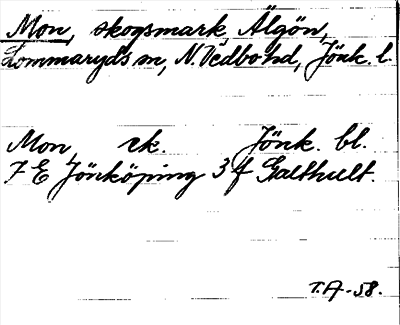 Mon, skogsmark, Älgön,
Lommaryds sn, N. Vedbo hd, Jönk. l.
Mon, ek. Jönk. bl.
7 E Jönköping 3 f Galthult.
T.A. -58.